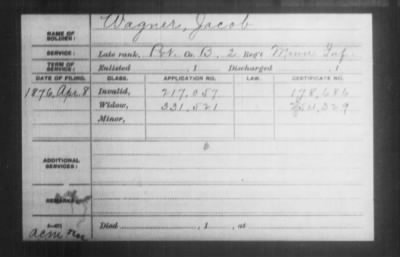 NAME OF SOLDIER: Wagner, Jacob
SERVICE: Late rank, Pvt. Co. B, 2 Reg't Minn Inf.
TERM OF SERVICE: Enlisted , 1 Discharged , 1
DATE OF FILING. CLASS. APPLICATION NO. LAW. CERTIFICATE NO.
1876, Apr. 8 Invalid, 217,057 178,686
Widow, 331,521 329
Minor,
ADDITIONAL SERVICES:
REMARKS:
Died , 1 , at